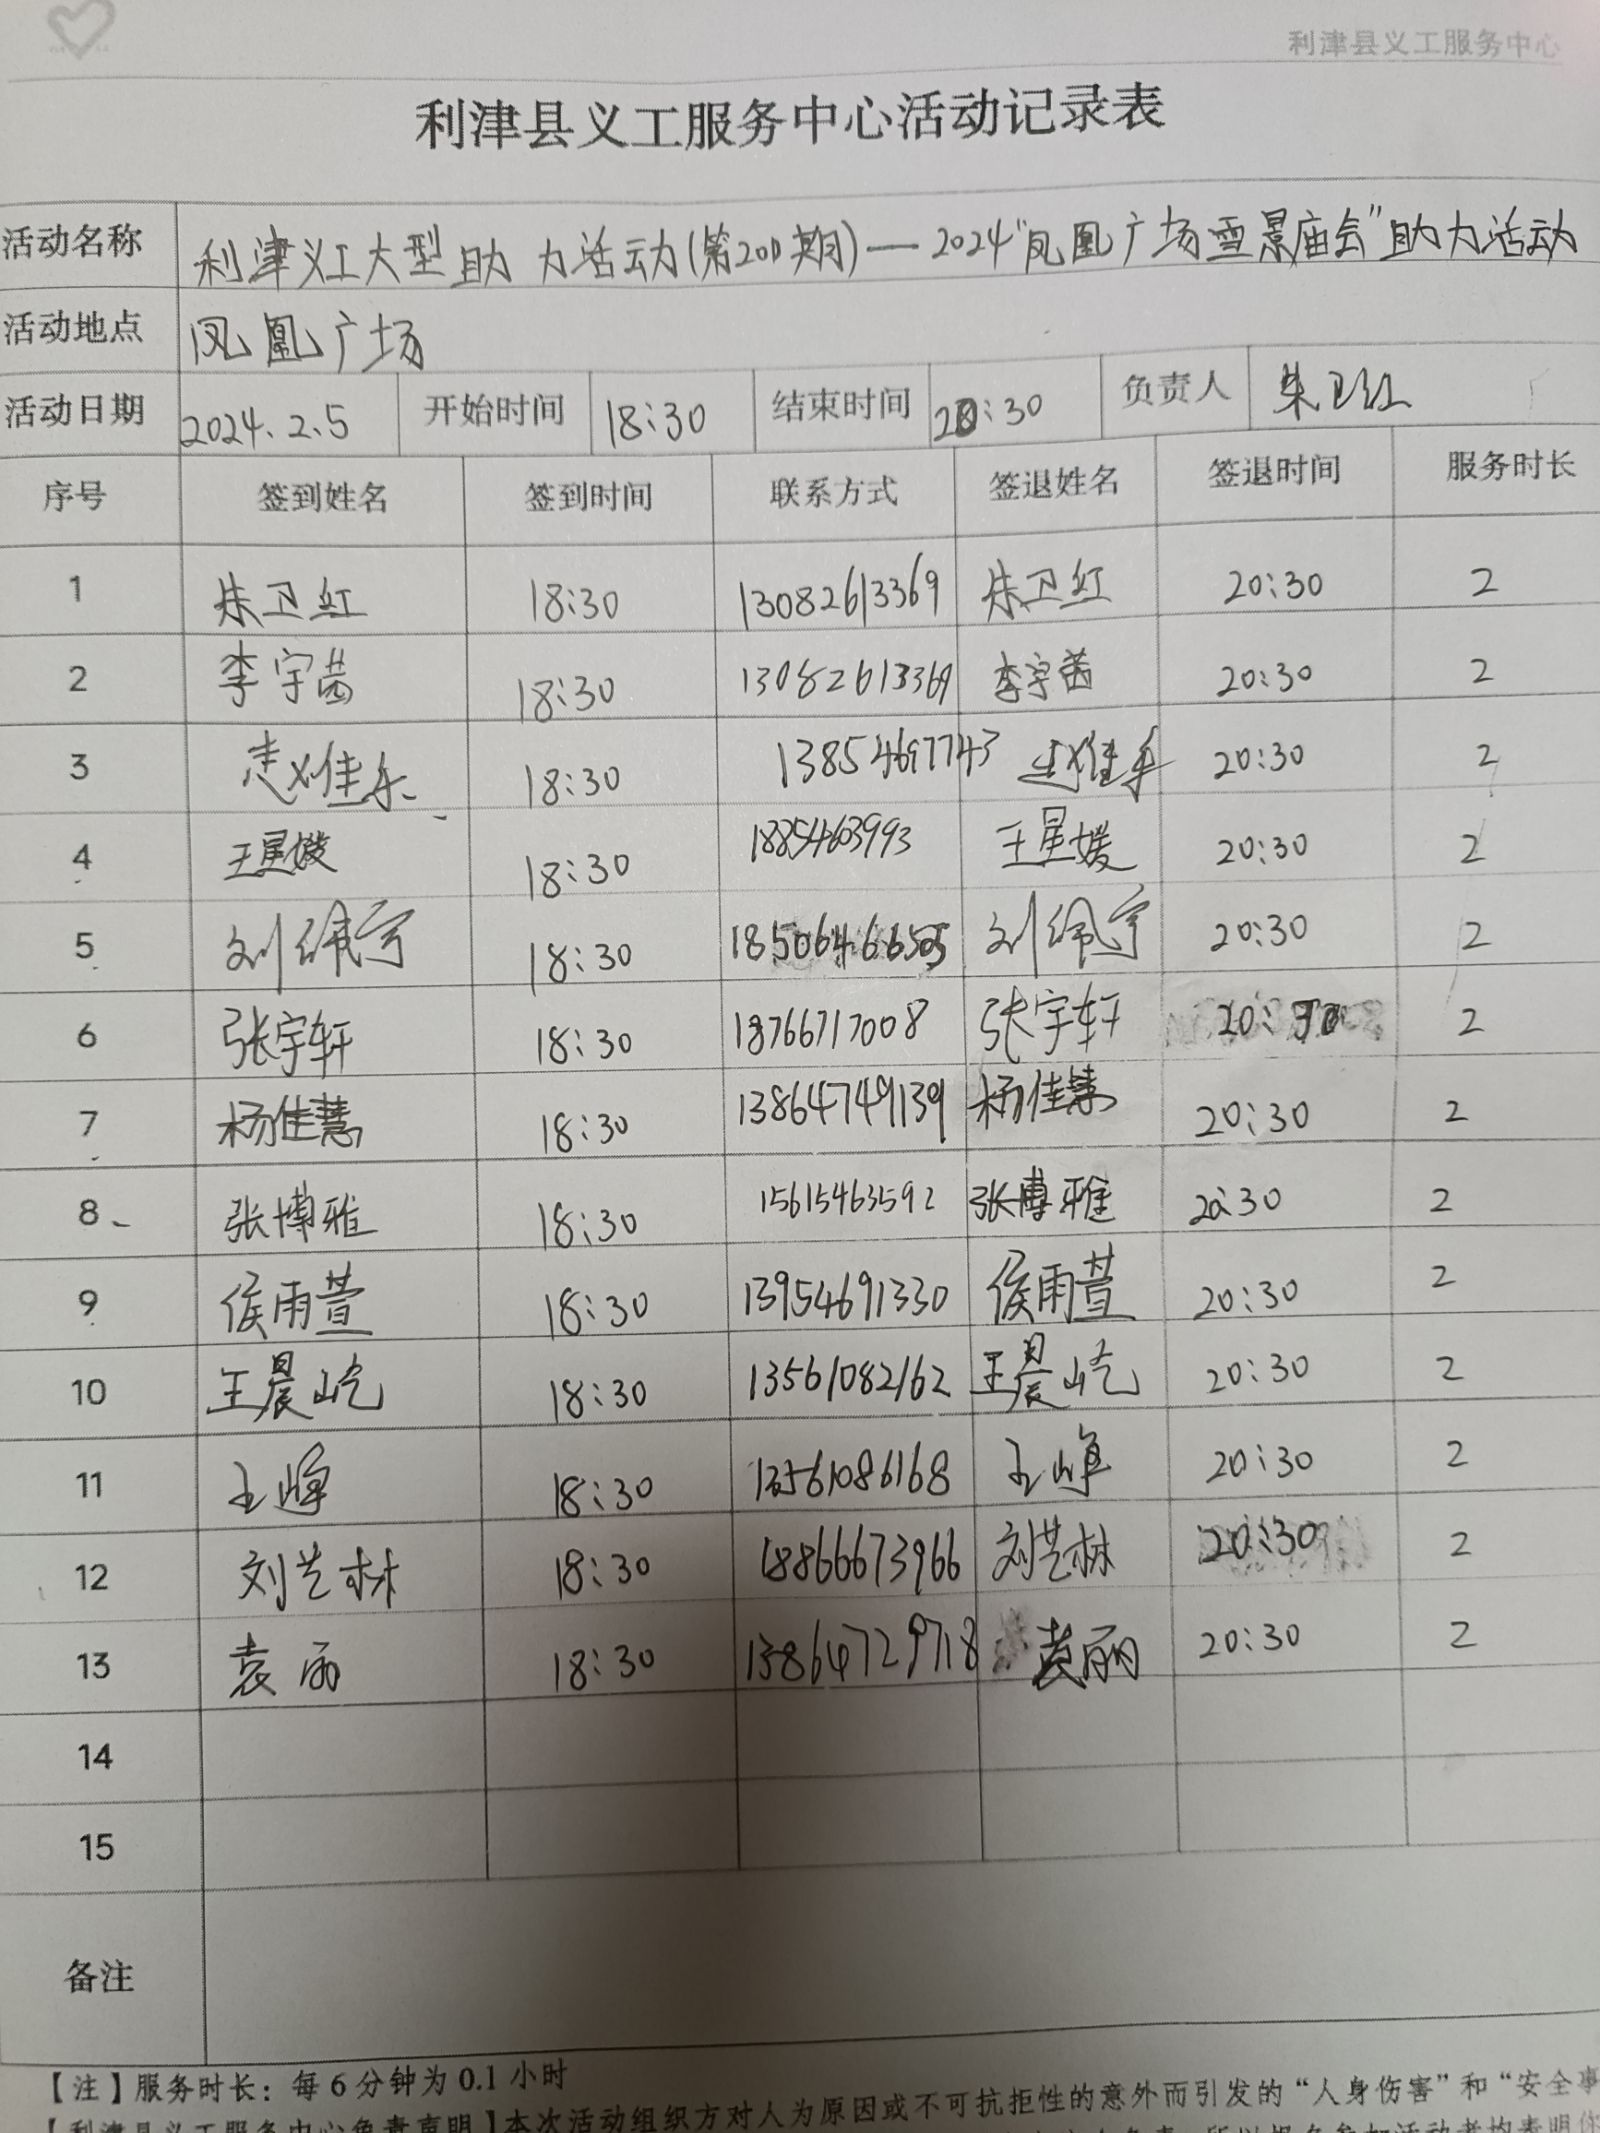 利津县义工服务中心
利津县义工服务中心活动记录表
活动名称 利津义工大型助力活动(第200期)—2024"凤凰广场雪景庙会"助力活动
活动地点 凤凰广场
活动日期 2024.2.5 开始时间 18:30 结束时间 20:30 负责人 朱卫红
序号 签到姓名 签到时间 联系方式 签退姓名 签退时间 服务时长
1 朱卫红 18:30 13082613369 朱卫红 20:30 2
2 李宇茜 18:30 13082613369 李宇茜 20:30 2
3 赵佳乐 18:30 13854697743 赵佳乐 20:30 2
4 王星媛 18:30 18854603993 王星媛 20:30 2
5 刘佩宇 18:30 18506466505 刘佩宇 20:30 2
6 张宇轩 18:30 18766717008 张宇轩 20:30 2
7 杨佳慧 18:30 13864749139 杨佳慧 20:30 2
8 张博雅 18:30 15615463592 张博雅 20:30 2
9 侯雨萱 18:30 13954691330 侯雨萱 20:30 2
10 王晨屹 18:30 13561082162 王晨屹 20:30 2
11 王峰 18:30 13561086168 王峰 20:30 2
12 刘艺林 18:30 18866673966 刘艺林 20:30 2
13 袁丽 18:30 13864729718 袁丽 20:30 2
14
15
备注
【注】服务时长：每6分钟为0.1小时
【利津县义工服务中心免责声明】本次活动组织方对人为原因或不可抗拒性的意外而引发的“人身伤害”和“安全事